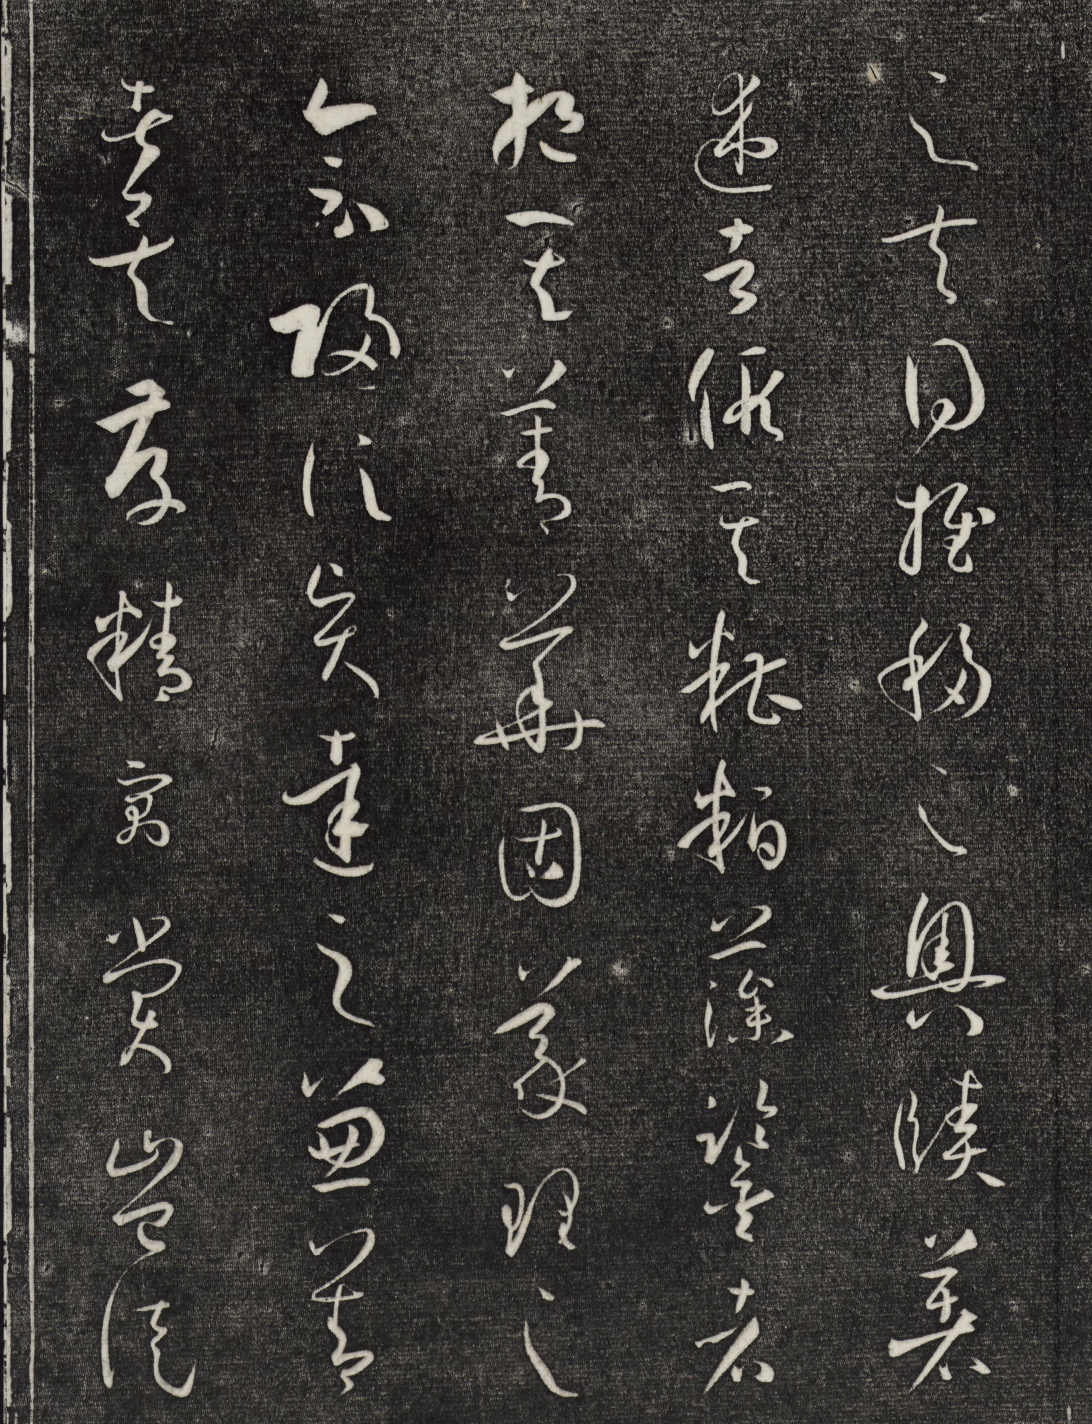 之夫得推移之奧賾著
述者假其糟粕藻鑒者
挹其菁華固義理之
會歸信賢達之兼善
者矣存精寓賞豈徒